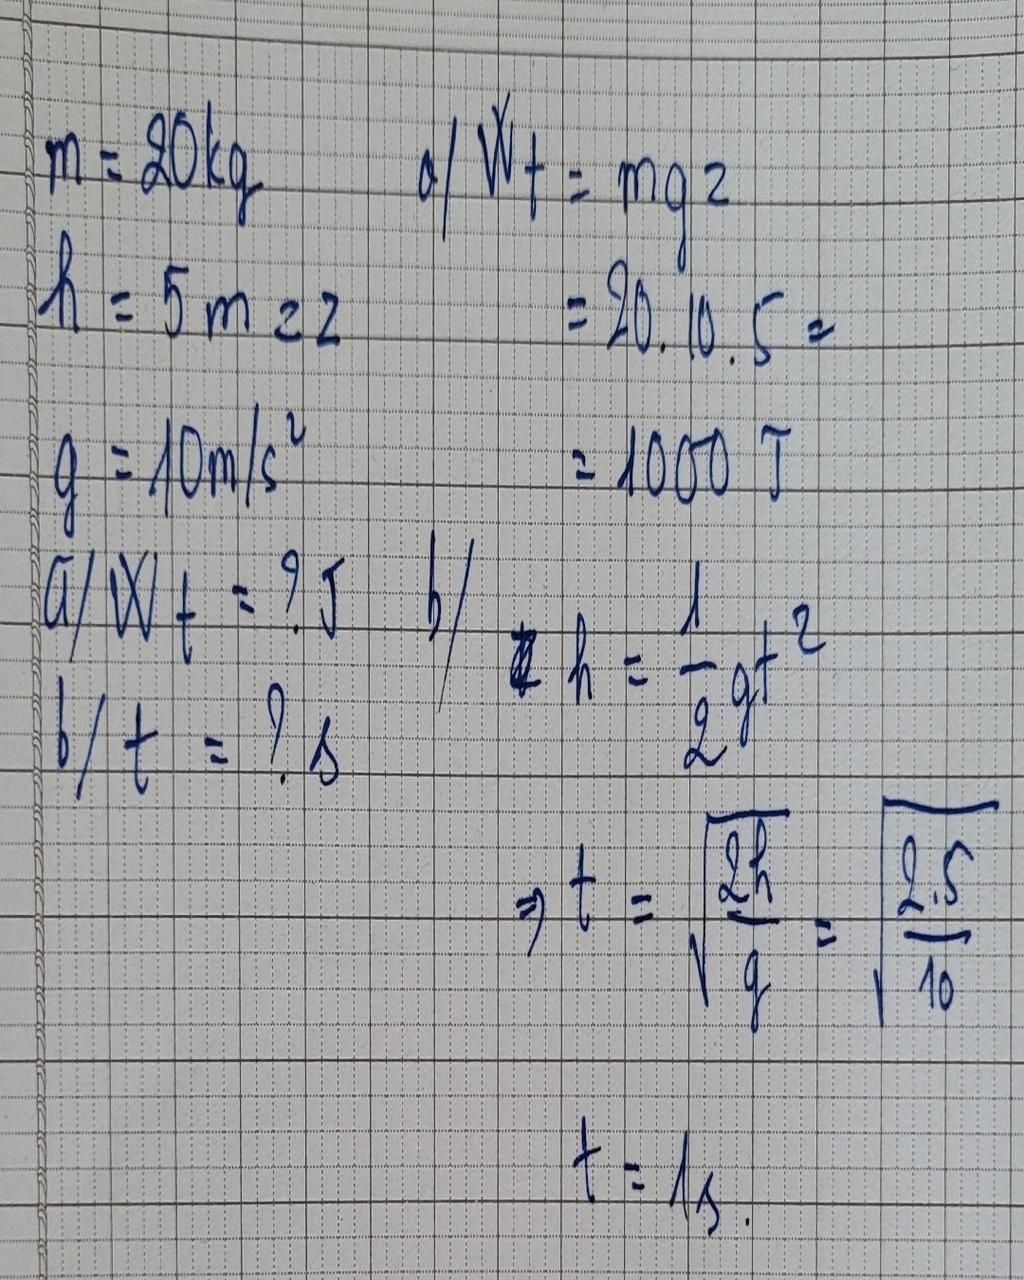 m = 20kg
h = 5 m = z
g = 10m/s²
a/ Wt = ? J
b/ t = ? s
a/ Wt = mgz
= 20.10.5 =
= 1000 J
b/ h = 1/2 gt²
⇒ t = √(2h/g) = √(2.5/10)
t = 1s.